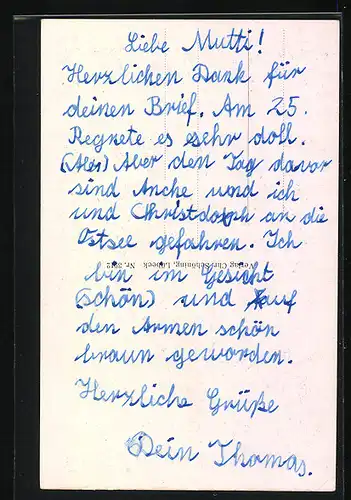 Liebe Mutti!
Herzlichen Dank für
deinen Brief. Am 25.
Regnete es sehr doll.
(Aber) Aber den Tag davor
sind Anche und ich
und Christdolph an die
Ostsee gefahren. Ich
bin im Gesicht
(schön) und auf
den Armen schön
braun geworden.
Herzliche Grüße
Dein Thomas.
Verlag Chr. Schöning, Lübeck